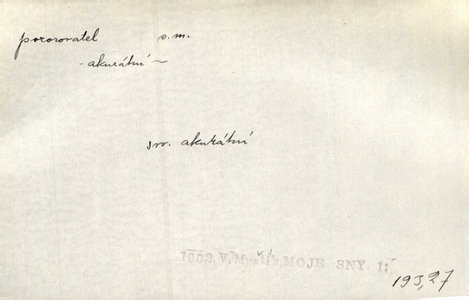 pozorovatel s.m.
- akurátní ~
srv. akurátní
1902, V. Mrštík, MOJE SNY. I:
193,27